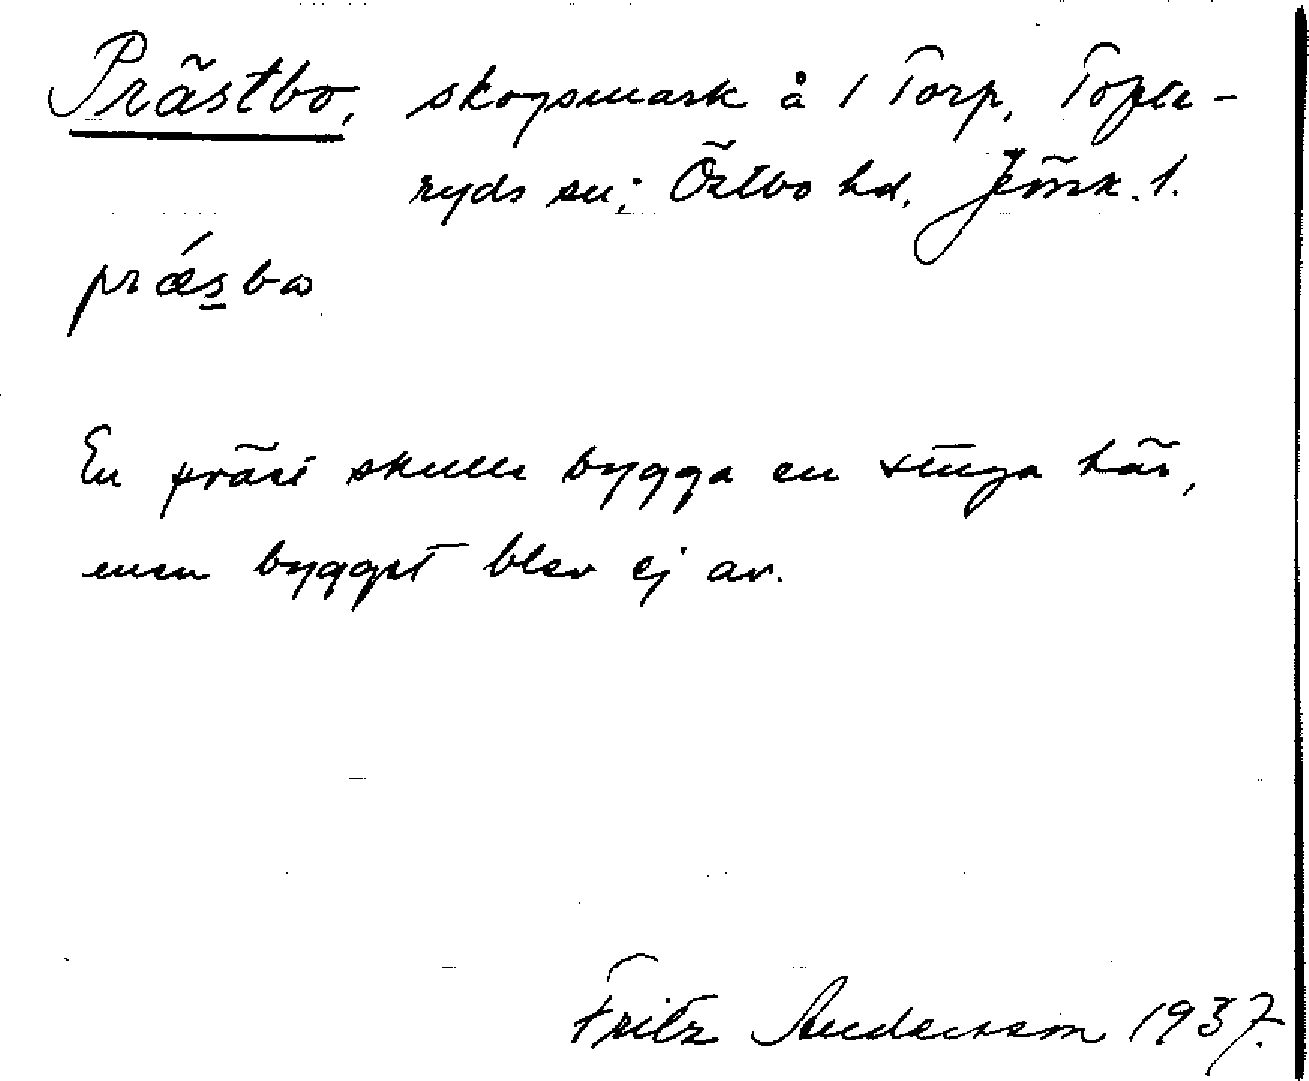 Prästbo, skogsmark å 1 Torp, Tofte-
ryds sn; Östbo hd. Jönk. l.
prǽsbω
En präst skulle bygga en stuga här,
men bygget blev ej av.
Fritz Andersson 1937.